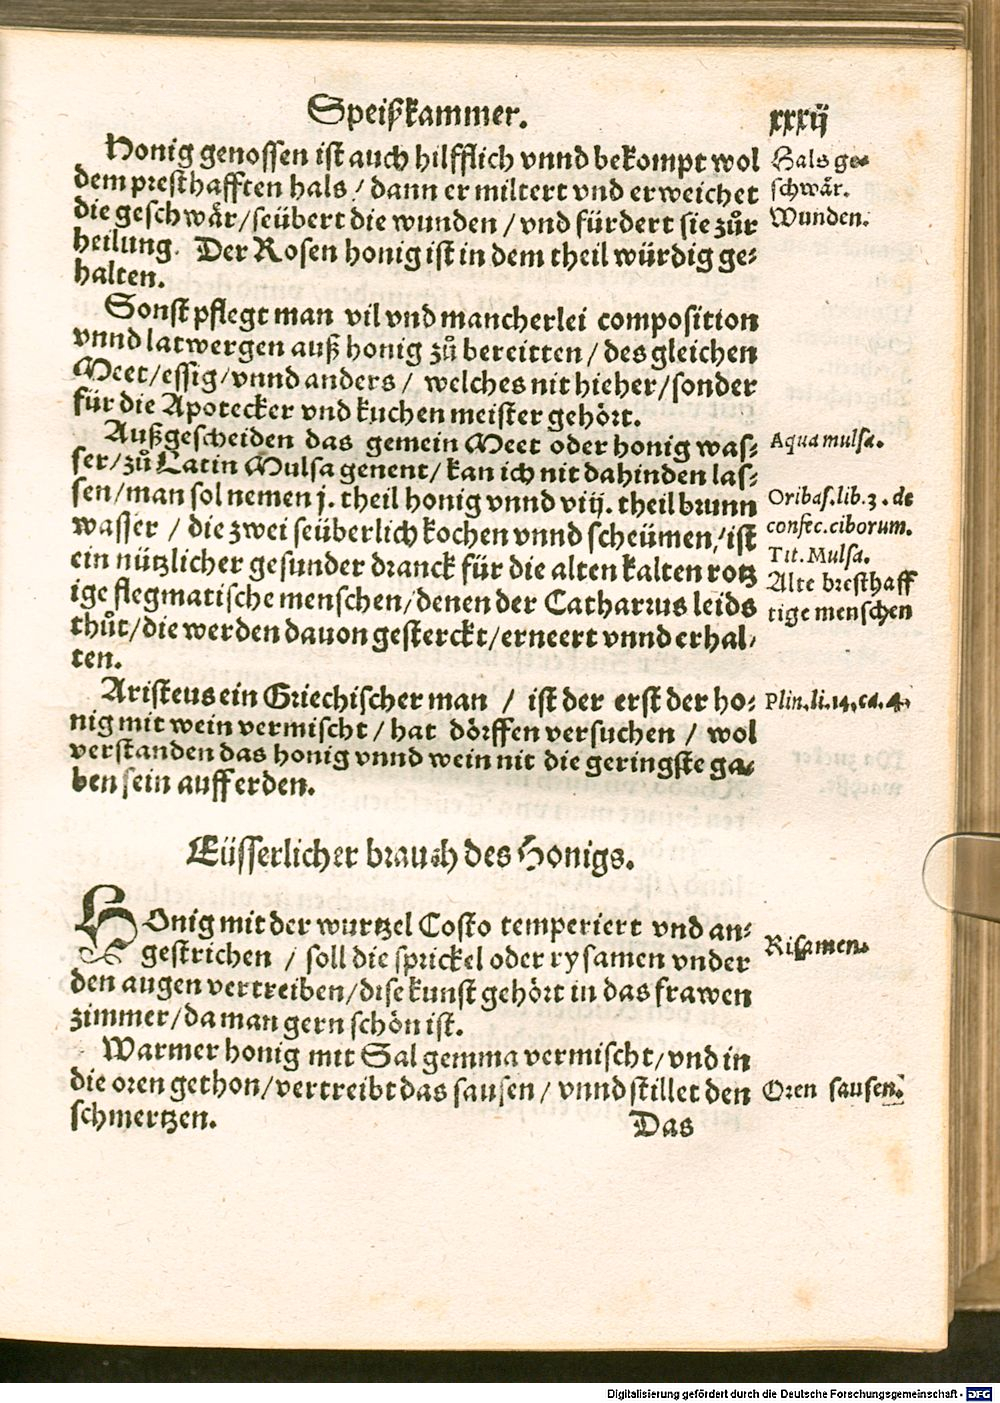 Speißkammer. xxxij
Honig genossen ist auch hilfflich vnnd bekompt wol
dem presthafften hals / dann er miltert vnd erweichet
die geschwår/seübert die wunden / vnd fürdert sie zůr
heilung. Der Rosen honig ist in dem theil würdig ge-
halten.
Hals ge-
schwår.
Wunden.
Sonst pflegt man vil vnd mancherlei composition
vnnd latwergen auß honig zů bereitten / des gleichen
Meet/essig/vnnd anders / welches nit hieher/sonder
für die Apotecker vnd kuchen meister gehört.
Außgescheiden das gemein Meet oder honig was-
ser/zů Latin Mulsa genent/kan ich nit dahinden las-
sen/man sol nemen j. theil honig vnnd viij. theil brunn
wasser / die zwei seüberlich kochen vnnd scheümen/ist
ein nützlicher gesunder dranck für die alten kalten rotz
ige flegmatische menschen/denen der Catharrus leids
thůt/die werden dauon gesterckt/erneert vnnd erhal-
ten.
Aqua mulsa.
Oribas.lib.3.de
confec.ciborum.
Tit.Mulsa.
Alte bresthaff
tige menschen
Aristeus ein Griechischer man / ist der erst der ho-
nig mit wein vermischt / hat dörffen versuchen / wol
verstanden das honig vnnd wein nit die geringste ga-
ben sein auff erden.
Plin.li.14.ca.4.
Eüsserlicher brauch des Honigs.
Honig mit der wurtzel Costo temperiert vnd an-
gestrichen / soll die sprickel oder rysamen vnder
den augen vertreiben/dise kunst gehört in das frawen
zimmer/da man gern schön ist.
Risamen.
Warmer honig mit Sal gemma vermischt/vnd in
die oren gethon/vertreibt das sausen / vnnd stillet den
schmertzen.
Oren sausen.
Das
Digitalisierung gefördert durch die Deutsche Forschungsgemeinschaft - DFG